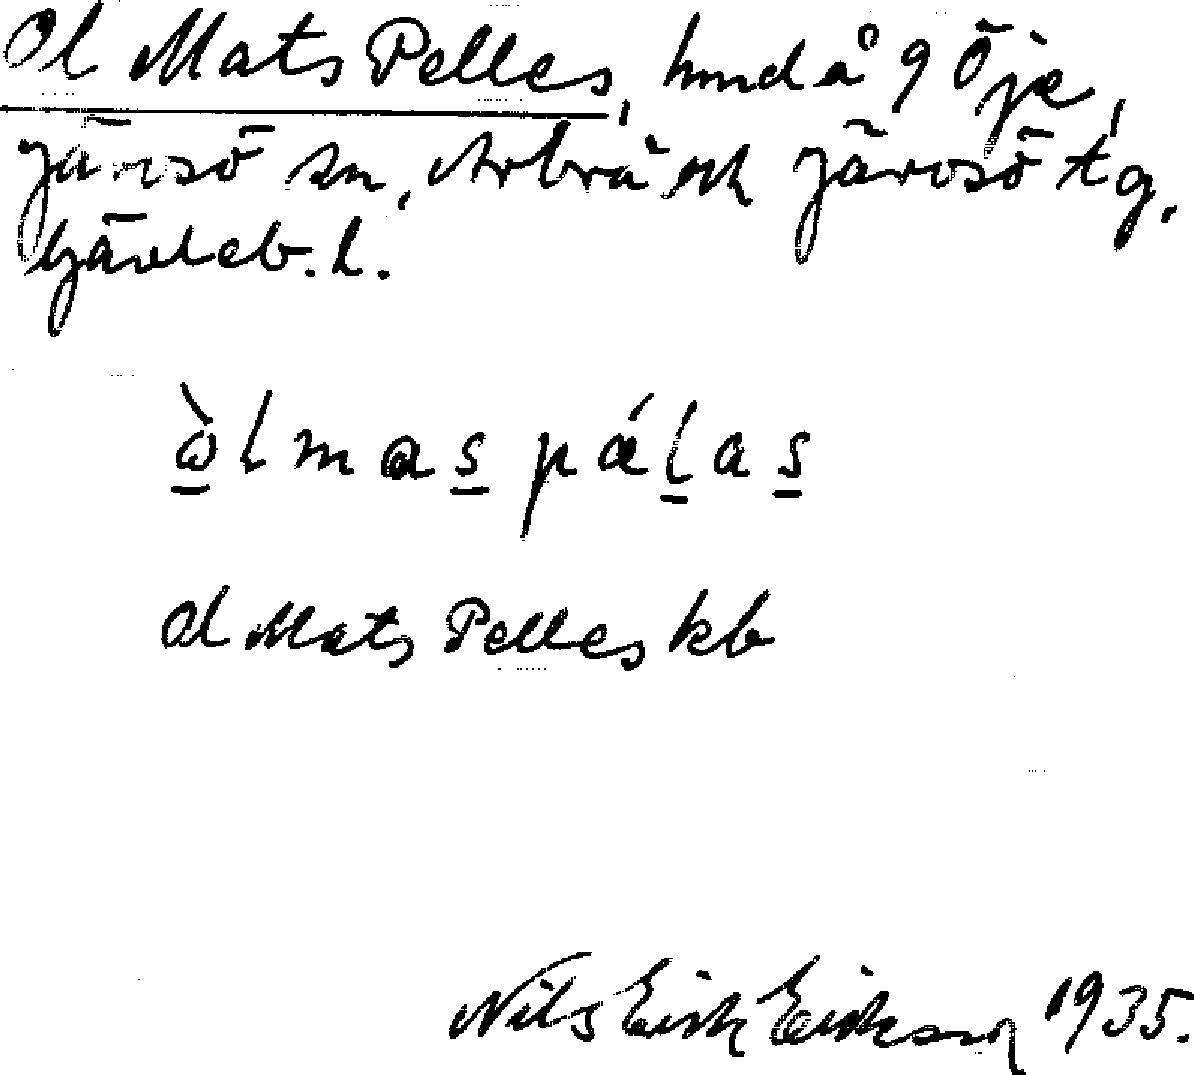 Ol Mats Pelles, hmd å 9 Öje,
Järvsö sn, Arbrå och Järvsö tg,
Gävleb. l.
ὼlmas pálas
Ol Mats Pelles kb
Nils Erik Eriksson 1935.